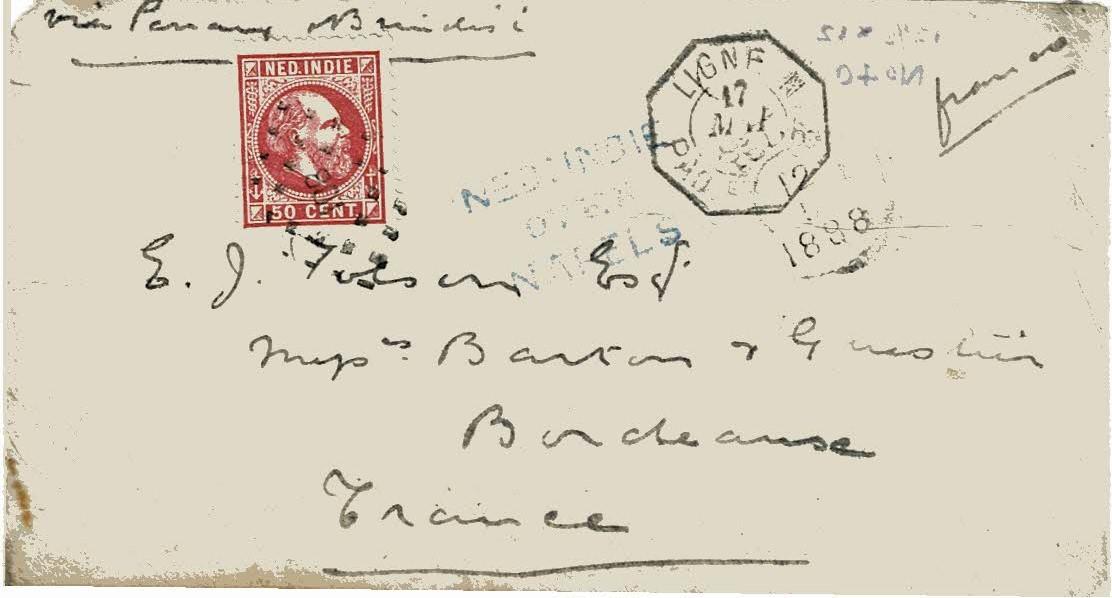 via Penang & Brindisi
NED. INDIE
50 CENT
LIGNE N
17
PAQ. FR.
1888
NED: INDIE
OVER
NAPELS
franco
No 40
E. J. Folson Esqr
Messrs Barton & Guestier
Bordeaux
France